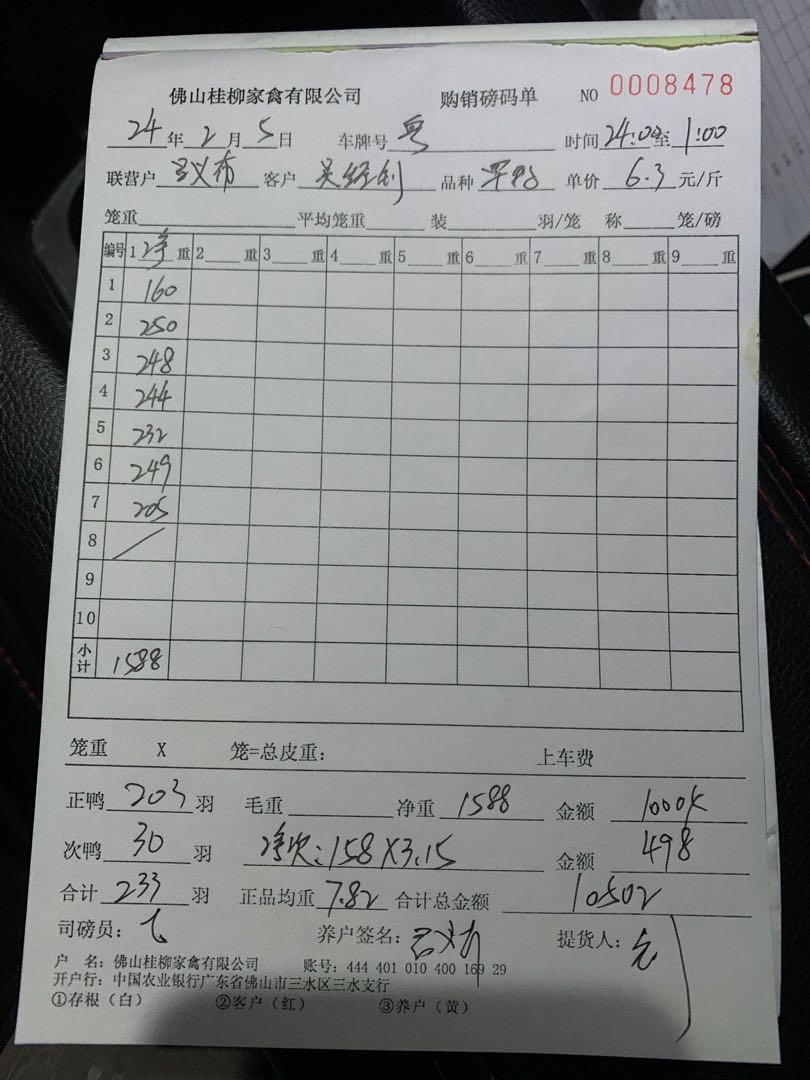 佛山桂柳家禽有限公司 购销磅码单 NO 0008478
24年2月5日 车牌号 粤 时间24:00至1:00
联营户 吕义布 客户 吴经创 品种 单价 6.3 元/斤
笼重 平均笼重 装 羽/笼 称 笼/磅
编号 1净重 2 重 3 重 4 重 5 重 6 重 7 重 8 重 9 重
1 160
2 250
3 248
4 244
5 232
6 249
7 205
8 /
9
10
小计 1588
笼重 X 笼=总皮重: 上车费
正鸭 203 羽 毛重 净重 1588 金额 10004
次鸭 30 羽 净次:158X3.15 金额 498
合计 233 羽 正品均重 7.82 合计总金额 10502
司磅员: 养户签名: 吕义布 提货人:
户 名: 佛山桂柳家禽有限公司 账号: 444 401 010 400 169 29
开户行: 中国农业银行广东省佛山市三水区三水支行
①存根(白) ②客户(红) ③养户(黄)